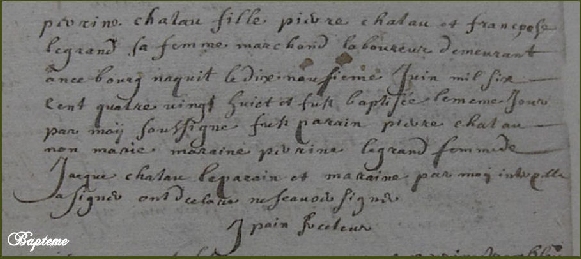 perrine chalau fille pierre chalau et francoise
legrand sa femme marchand laboureur demeurant
en ce bourg naquit le dixneufieme Juin mil six
Cent quatre vingt huict et fust baptisée le meme Jour
par moy soussigné fust parain pierre chalau
non marié maraine perrine legrand femme de
Jacque chalau le parain et maraine par moy interpellé
a signer ont declare ne scavoir signer
J pain Recteur
Bapteme